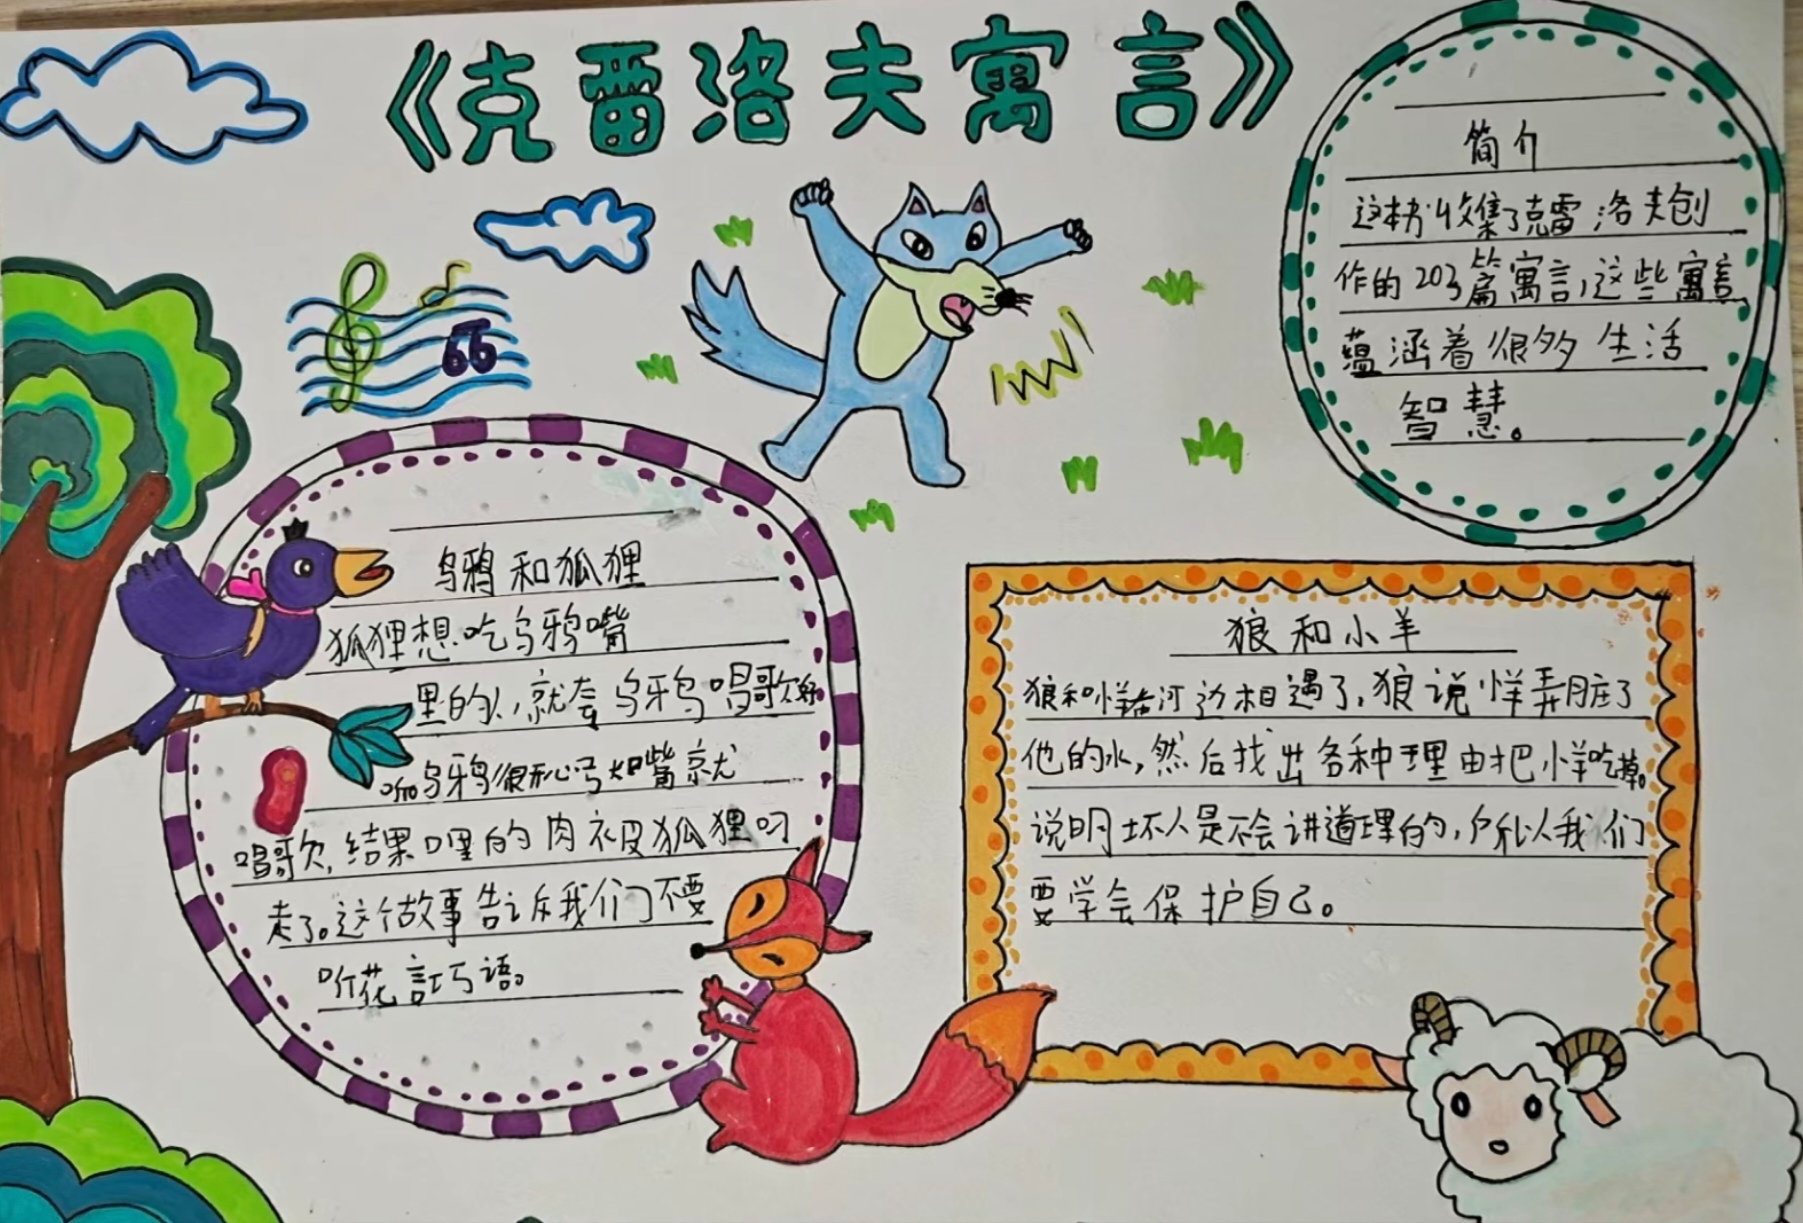 《克雷洛夫寓言》
简介
这本书收集了克雷洛夫创
作的203篇寓言,这些寓言
蕴涵着很多生活
智慧。
乌鸦和狐狸
狐狸想吃乌鸦嘴
里的肉,就夸乌鸦唱歌好
听乌鸦很开心马张嘴就
唱歌,结果口里的肉被狐狸叼
走了。这个故事告诉我们不要
听花言巧语。
狼和小羊
狼和小羊在河边相遇了,狼说小羊弄脏了
他的水,然后找出各种理由把小羊吃掉。
说明坏人是不会讲道理的,所以我们
要学会保护自己。